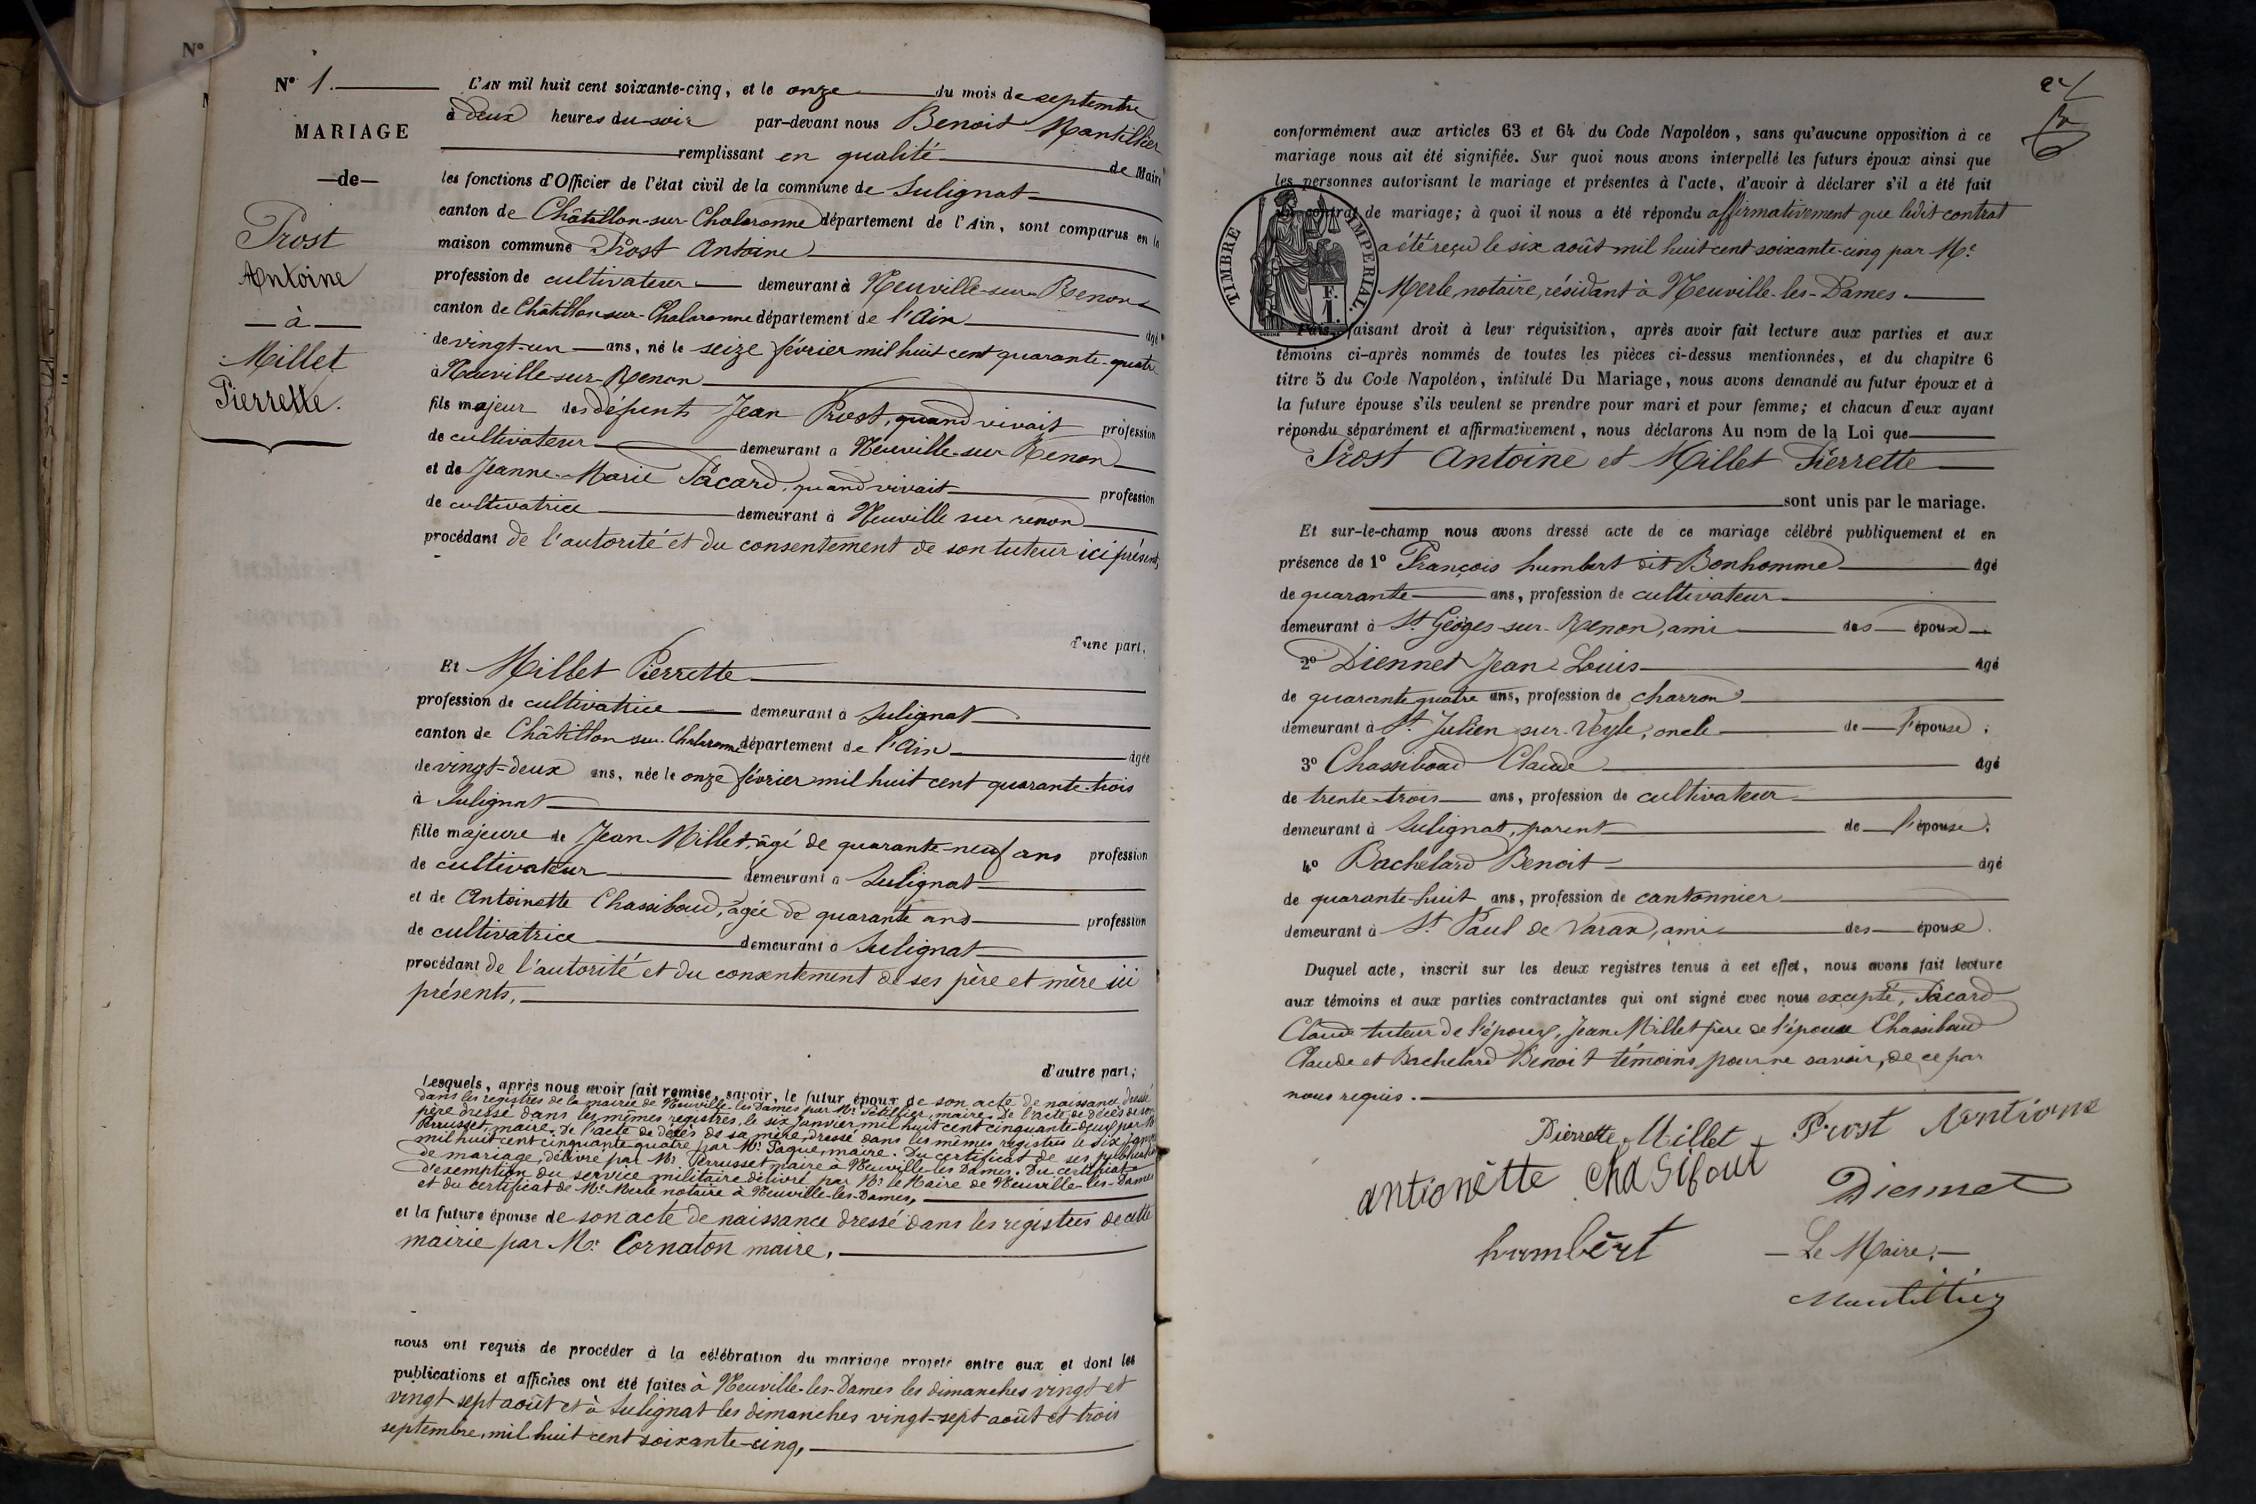 N°
N° 1.
MARIAGE
de
Prost
Antoine
à
Millet
Pierrette.
L'AN mil huit cent soixante-cinq, et le onze du mois de septembre
à deux heures du soir par-devant nous Benoit Mantillier
remplissant en qualité de Maire
les fonctions d'Officier de l'état civil de la commune de Sulignat
canton de Châtillon-sur-Chalaronne département de l'Ain, sont comparus en la
maison commune Prost Antoine
profession de cultivateur demeurant à Neuville-sur-Renon
canton de Châtillon-sur-Chalaronne département de l'Ain âgé
de vingt-un ans, né le seize février mil huit cent quarante-quatre
à Neuville-sur-Renon
fils majeur des défunts Jean Prost, quand vivait profession
de cultivateur demeurant à Neuville-sur Renon
et de Jeanne-Marie Pacard, quand vivait profession
de cultivatrice demeurant à Neuville sur renon
procédant de l'autorité et du consentement de son tuteur ici présent,
d'une part,
Et Millet Pierrette
profession de cultivatrice demeurant à Sulignat
canton de Châtillon-sur-Chalaronne département de l'Ain âgée
de vingt-deux ans, née le onze février mil huit cent quarante-trois
à Sulignat
fille majeure de Jean Millet, âgé de quarante-neuf ans profession
de cultivateur demeurant à Sulignat
et de Antoinette Chassiboud, âgée de quarante ans profession
de cultivatrice demeurant à Sulignat
procédant de l'autorité et du consentement de ses père et mère ici
présents,
d'autre part;
Lesquels, après nous avoir fait remise, savoir, le futur époux de son acte de naissance dressé
dans les registres de la mairie de Neuville-les-Dames par Mr maire. De l'acte de décès de son
père dressé dans les mêmes registres, le six janvier mil huit cent cinquante-deux par Mr
Perrusset, maire. De l'acte de décès de sa mère, dressé dans les mêmes registres le six janvier
mil huit cent cinquante-quatre par Mr Paque, maire. Du certificat de ses publications
de mariage, délivré par Mr Perrusset maire à Neuville-les-Dames. Du certificat
d'exemption du service militaire délivré par Mr le Maire de Neuville-les-Dames
et du certificat de Mr Merle notaire à Neuville-les-Dames,
et la future épouse de son acte de naissance dressé dans les registres de cette
mairie par Mr Cornaton maire,
nous ont requis de procéder à la célébration du mariage projeté entre eux et dont les
publications et affiches ont été faites à Neuville-les-Dames les dimanches vingt et
vingt-sept août et à Sulignat les dimanches vingt-sept août et trois
septembre, mil huit cent soixante-cinq,
conformément aux articles 63 et 64 du Code Napoléon, sans qu'aucune opposition à ce
mariage nous ait été signifiée. Sur quoi nous avons interpellé les futurs époux ainsi que
les personnes autorisant le mariage et présentes à l'acte, d'avoir à déclarer s'il a été fait
un contrat de mariage; à quoi il nous a été répondu affirmativement que ledit contrat
a été reçu le six août mil huit cent soixante-cinq par Me
Merle, notaire, résidant à Neuville-les-Dames.
TIMBRE IMPERIAL.
F.
1.
Puis, faisant droit à leur réquisition, après avoir fait lecture aux parties et aux
témoins ci-après nommés de toutes les pièces ci-dessus mentionnées, et du chapitre 6
titre 5 du Code Napoléon, intitulé Du Mariage, nous avons demandé au futur époux et à
la future épouse s'ils veulent se prendre pour mari et pour femme; et chacun d'eux ayant
répondu séparément et affirmativement, nous déclarons Au nom de la Loi que
Prost Antoine et Millet Pierrette
sont unis par le mariage.
Et sur-le-champ nous avons dressé acte de ce mariage célébré publiquement et en
présence de 1° François humbert dit Bonhomme âgé
de quarante ans, profession de cultivateur
demeurant à St Géoges-sur-Renon, ami des époux
2° Diennet Jean Louis âgé
de quarante quatre ans, profession de charron
demeurant à St Julien sur-Veyle, oncle de l'épouse;
3° Chassiboud Claude âgé
de trente-trois ans, profession de cultivateur
demeurant à Sulignat, parent de l'épouse;
4° Bachelard Benoit âgé
de quarante-huit ans, profession de cantonnier
demeurant à St Paul de Varax, ami des époux.
Duquel acte, inscrit sur les deux registres tenus à cet effet, nous avons fait lecture
aux témoins et aux parties contractantes qui ont signé avec nous excepté, Pacard
Claude tuteur de l'époux, Jean Millet père de l'épouse Chassiboud
Claude et Bachelard Benoit témoins pour ne savoir, de ce par
nous requis.
Pierrette Millet Prost Antione
antionètte Chasifout Diennet
humbèrt Le Maire,
Mantillier